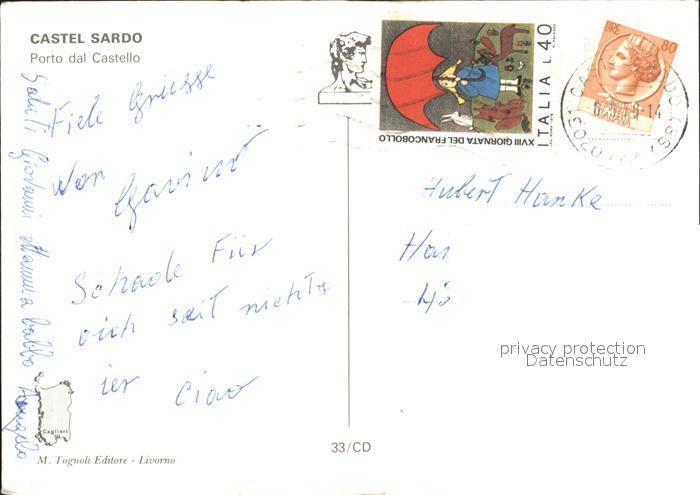 CASTEL SARDO
Porto dal Castello
Fiele Grüsse
von
Gavino
Schade Für
oich seit nichts
ier Ciao
Saluti Giovanni Mamma babbo Angelo
Cagliari
M. Tognoli Editore - Livorno
33/CD
XVIII GIORNATA DEL FRANCOBOLLO
ITALIA L. 40
LIRE 80
07031
(SS)
Hubert Hanke
privacy protection
Datenschutz